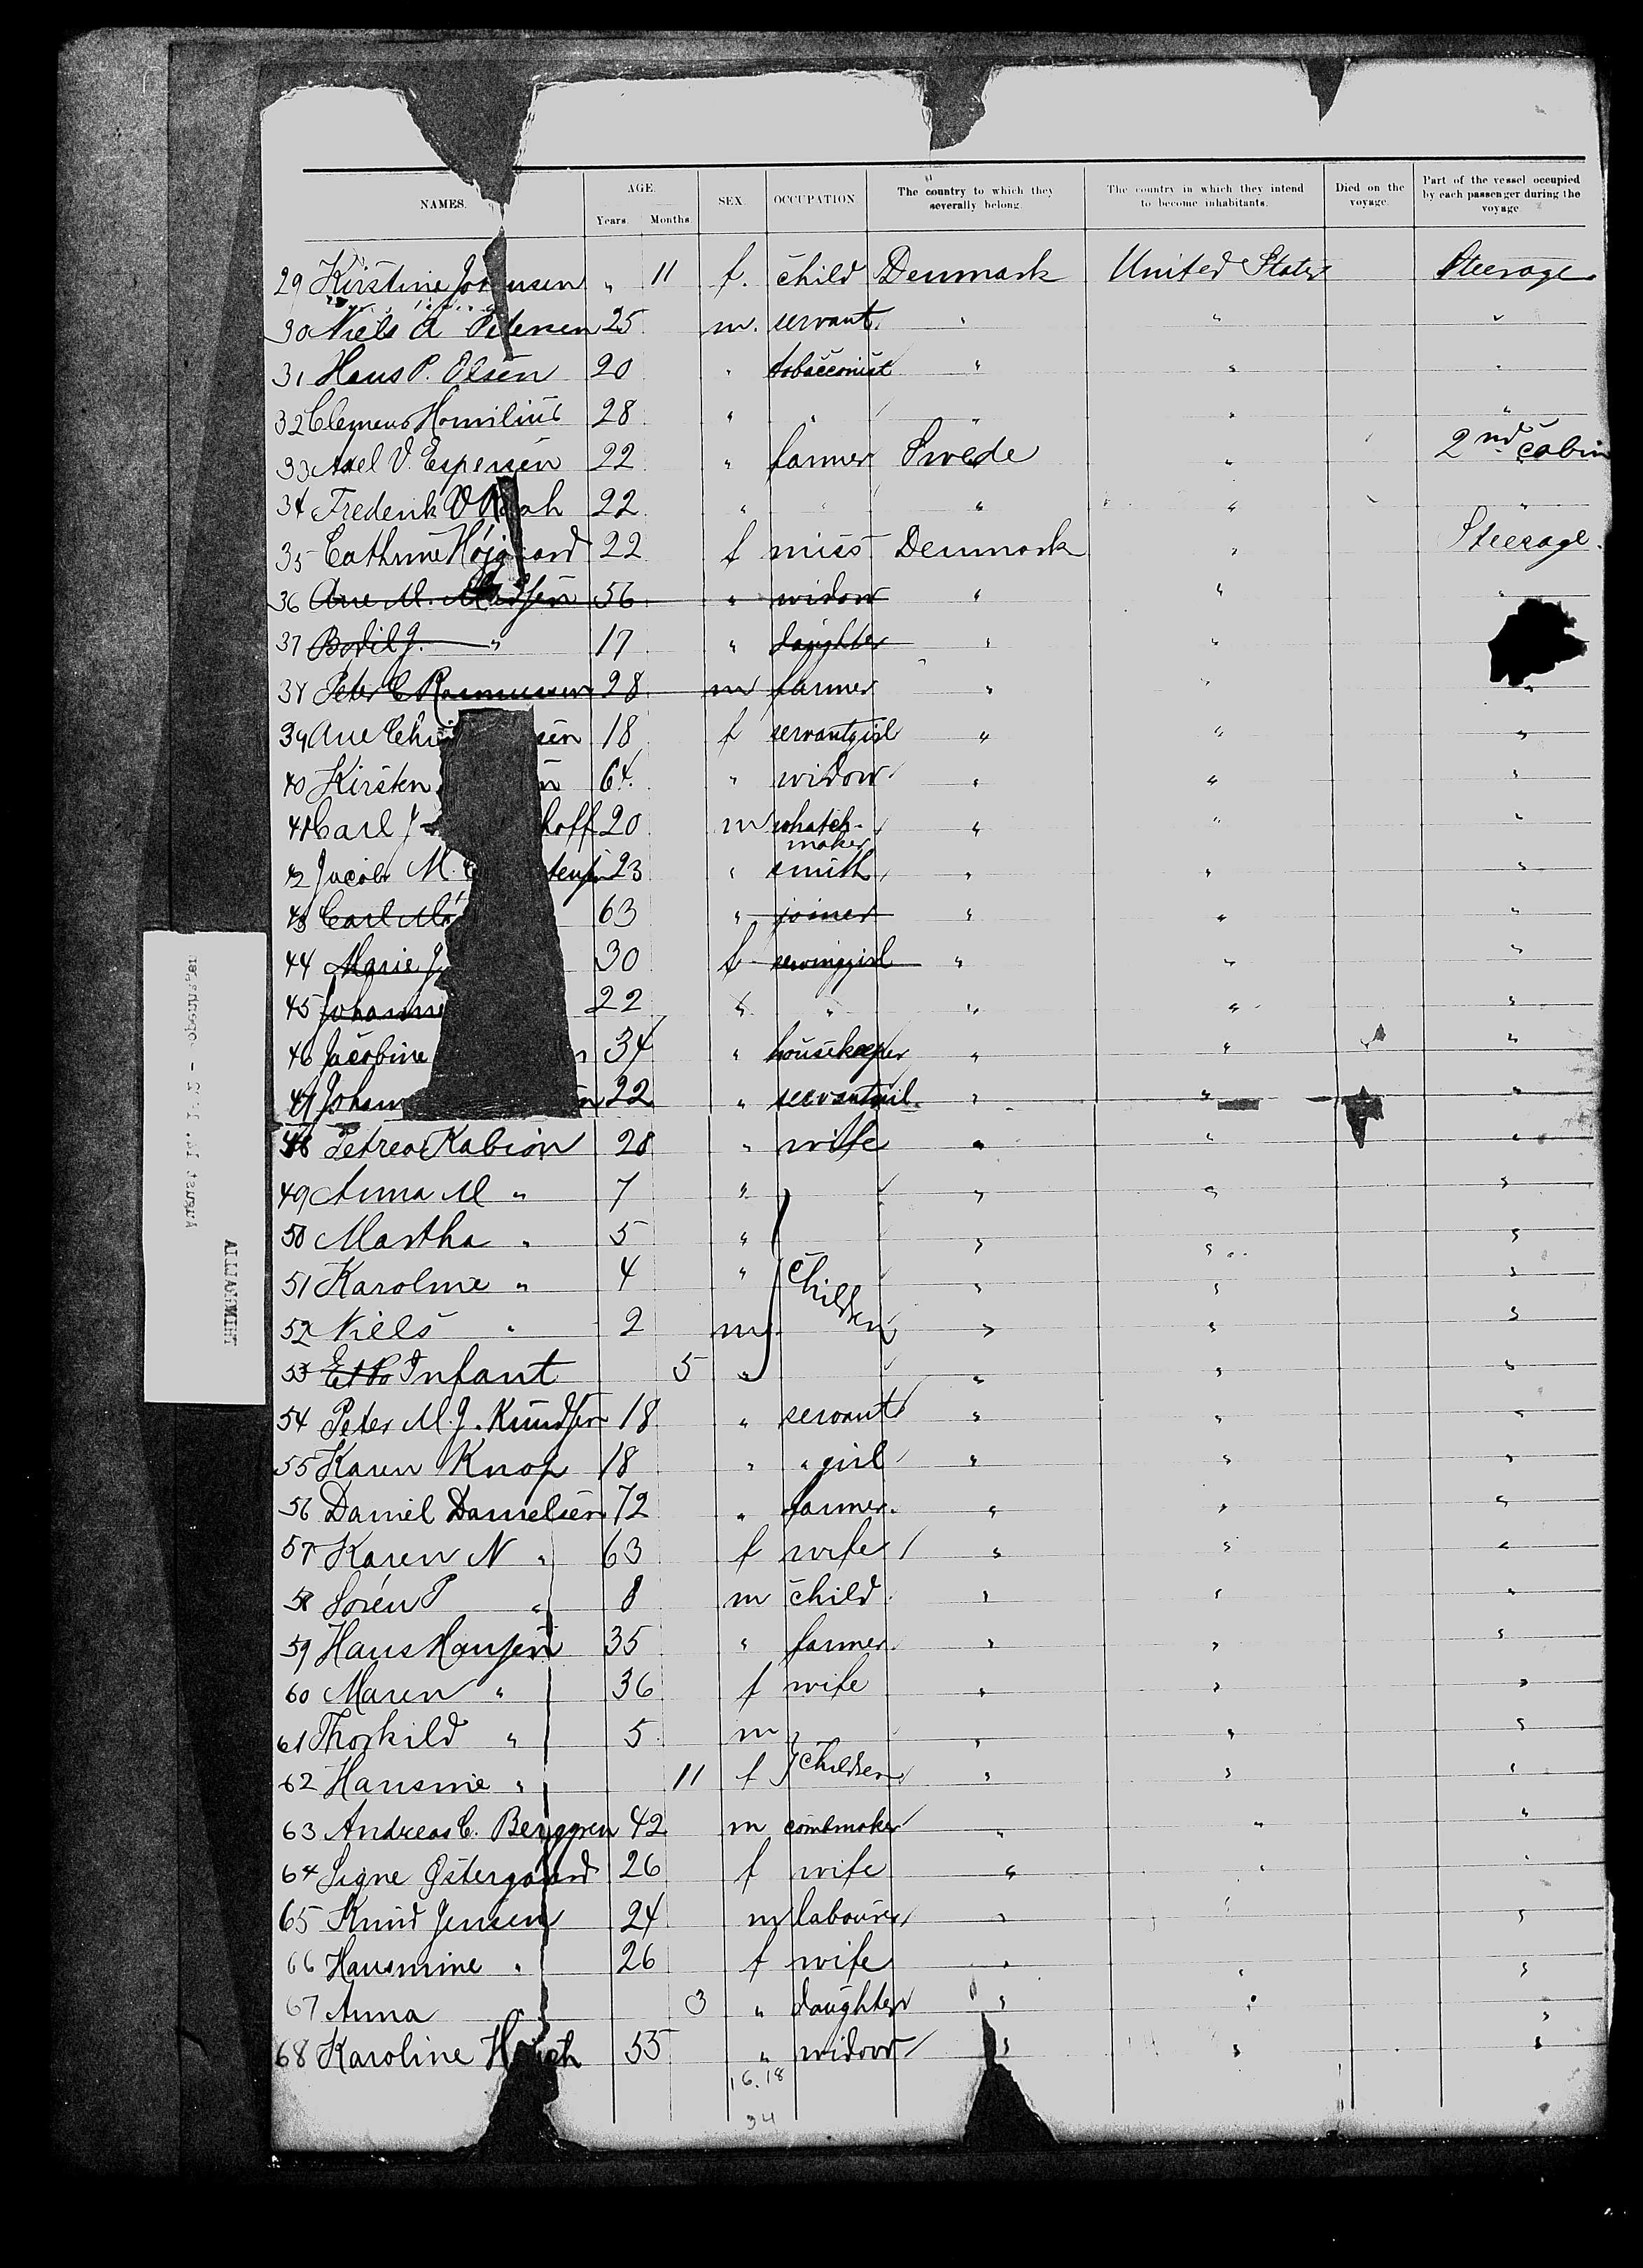 NAMES. AGE. Years. Months. SEX. OCCUPATION The country to which they severally belong. The country in which they intend to become inhabitants. Died on the voyage. Part of the vessel occupied by each passenger during the voyage
29 Kirstine Jo nsen " 11 f. child Denmark United States Steerage
30 Niels A Petersen 25 m. servant " " "
31 Hans P. Olsen 20 " tobacconist " " "
32 Clemens Homilius 28 " " " " "
33 Axel V. Espersen 22 " farmer Swede " 2nd cabin
34 Frederik V 22 " " " " "
35 Cathrine Højgaard 22 f miss Denmark " Steerage.
36 Ane M. Madsen 56 " widow " " "
37 Bodil J. " 17 " daughter " "
38 Peter C Rasmussen 28 m farmer " " "
39 Ane Chri sen 18 f servantgirl " " "
40 Kirsten n 64. " widow " " "
41 Carl J hoff 20 m whatch-maker " " "
42 Jacob M. C tensen 23 " smith " " "
43 Carl Mo 63 " joiner " " "
44 Marie J 30 f sewinggirl " " "
45 Johanne 22 " " " " "
46 Jacobine n 34 " housekeeper " " "
47 Johan n 22 " servantgirl " " "
48 Petrea Kabion 28 " wife " " "
49 Anna M " 7 " " " "
50 Martha " 5 " " " "
51 Karoline " 4 " Children " " "
52 Niels " 2 m " " "
53 Infant 5 " " " "
54 Peter M. J. Knudsen 18 " servant " " "
55 Karen Knop 18 " " girl " " "
56 Daniel Danielsen 72 " farmer. " " "
57 Karen N " 63 f wife " " "
58 Sören P " 8 m child " " "
59 Hans Hansen 35 " farmer " " "
60 Maren " 36 f wife " " "
61 Thorkild " 5 m " " "
62 Hansine " 11 f Children " " "
63 Andreas C. Berggren 42 m combmaker " " "
64 Signe Østergaard 26 f wife " " "
65 Knud Jensen 24 m labourer " " "
66 Hansmine " 26 f wife " " "
67 Anna 3 " daughter " " "
68 Karoline H ch 55 " widow " " "
16.18
34